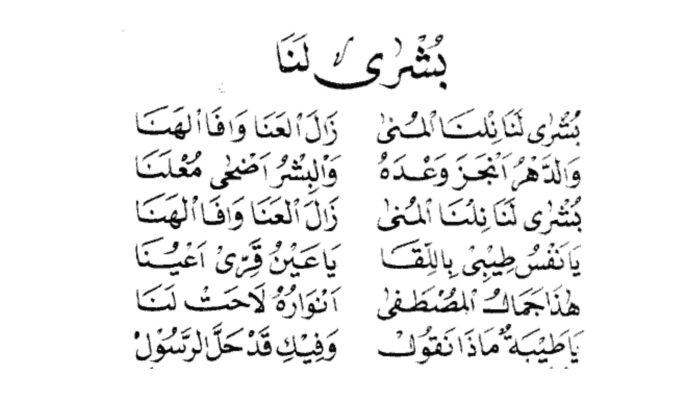 بُشْرٰى لَنَا
بُشْرٰى لَنَا نِلْنَا الْمُنٰى زَالَ الْعَنَا وَافَا الْهَنَا
وَالدَّهْرُ اَنْجَزَ وَعْدَهُ وَالْبِشْرُ اَضْحٰى مُعْلَنَا
بُشْرٰى لَنَا نِلْنَا الْمُنٰى زَالَ الْعَنَا وَافَا الْهَنَا
يَا نَفْسُ طِيْبِىْ بِاللِّقَا يَا عَيْنُ قَرِّىْ اَعْيُنَا
هٰذَا جَمَالُ الْمُصْطَفٰى اَنْوَارُهُ لَاحَتْ لَنَا
يَا طَيْبَةُ مَاذَا نَقُوْلْ وَفِيْكِ قَدْ حَلَّ الرَّسُوْلْ